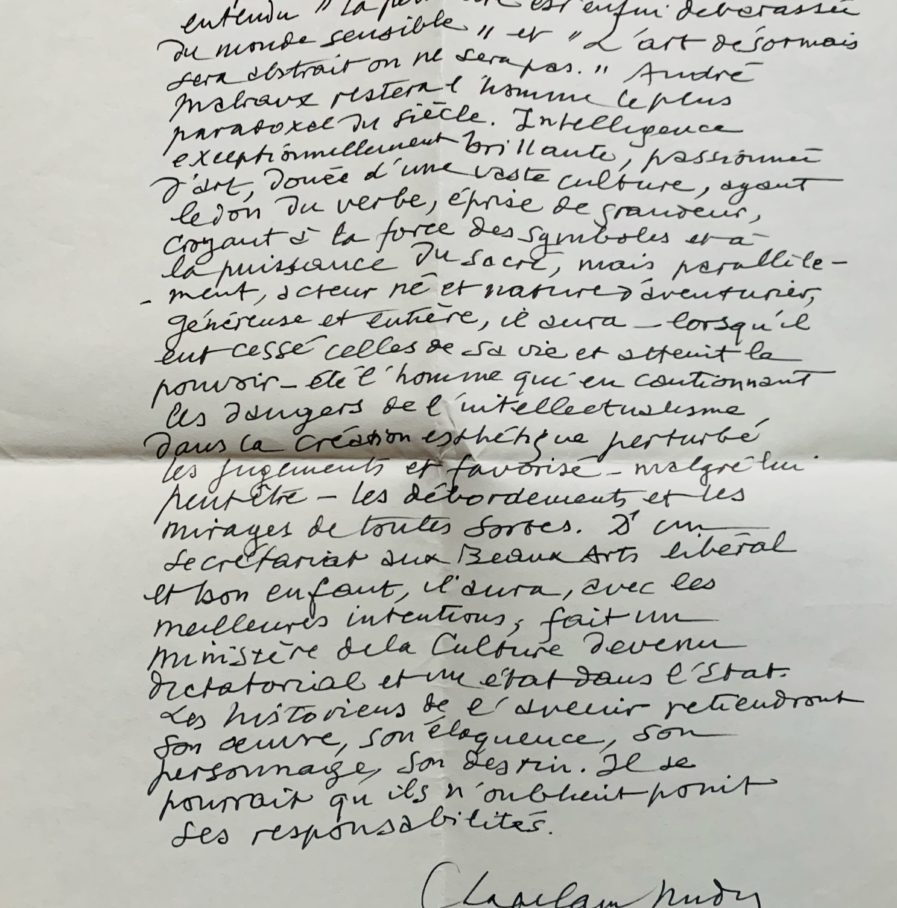 entendu " la est enfin débarassée
du monde sensible " et " L'art désormais
sera abstrait on ne sera pas. " André
Malraux restera l'homme le plus
paradoxal du siècle. Intelligence
exceptionnellement brillante, passionnée
d'art, douée d'une vaste culture, ayant
le don du verbe, éprise de grandeur,
croyant à la force des symboles et à
la puissance du sacré, mais parallèle-
- ment, acteur né et nature d'aventurier,
généreuse et entière, il aura - lorsqu'il
eut cessé celles de sa vie et atteint le
pouvoir - été l'homme qui en cautionnant
les dangers de l'intellectualisme
dans la création esthétique perturbé
les jugements et favorisé - malgré lui
peut être - les débordements et les
mirages de toutes sortes. D'un
secrétariat aux Beaux Arts libéral
et bon enfant, il aura, avec les
meilleures intentions, fait un
ministère de la Culture devenu
dictatorial et un état dans l'État.
Les historiens de l'avenir retiendront
son œuvre, son éloquence, son
personnage, son destin. Il se
pourrait qu'ils n'oublient point
ses responsabilités.